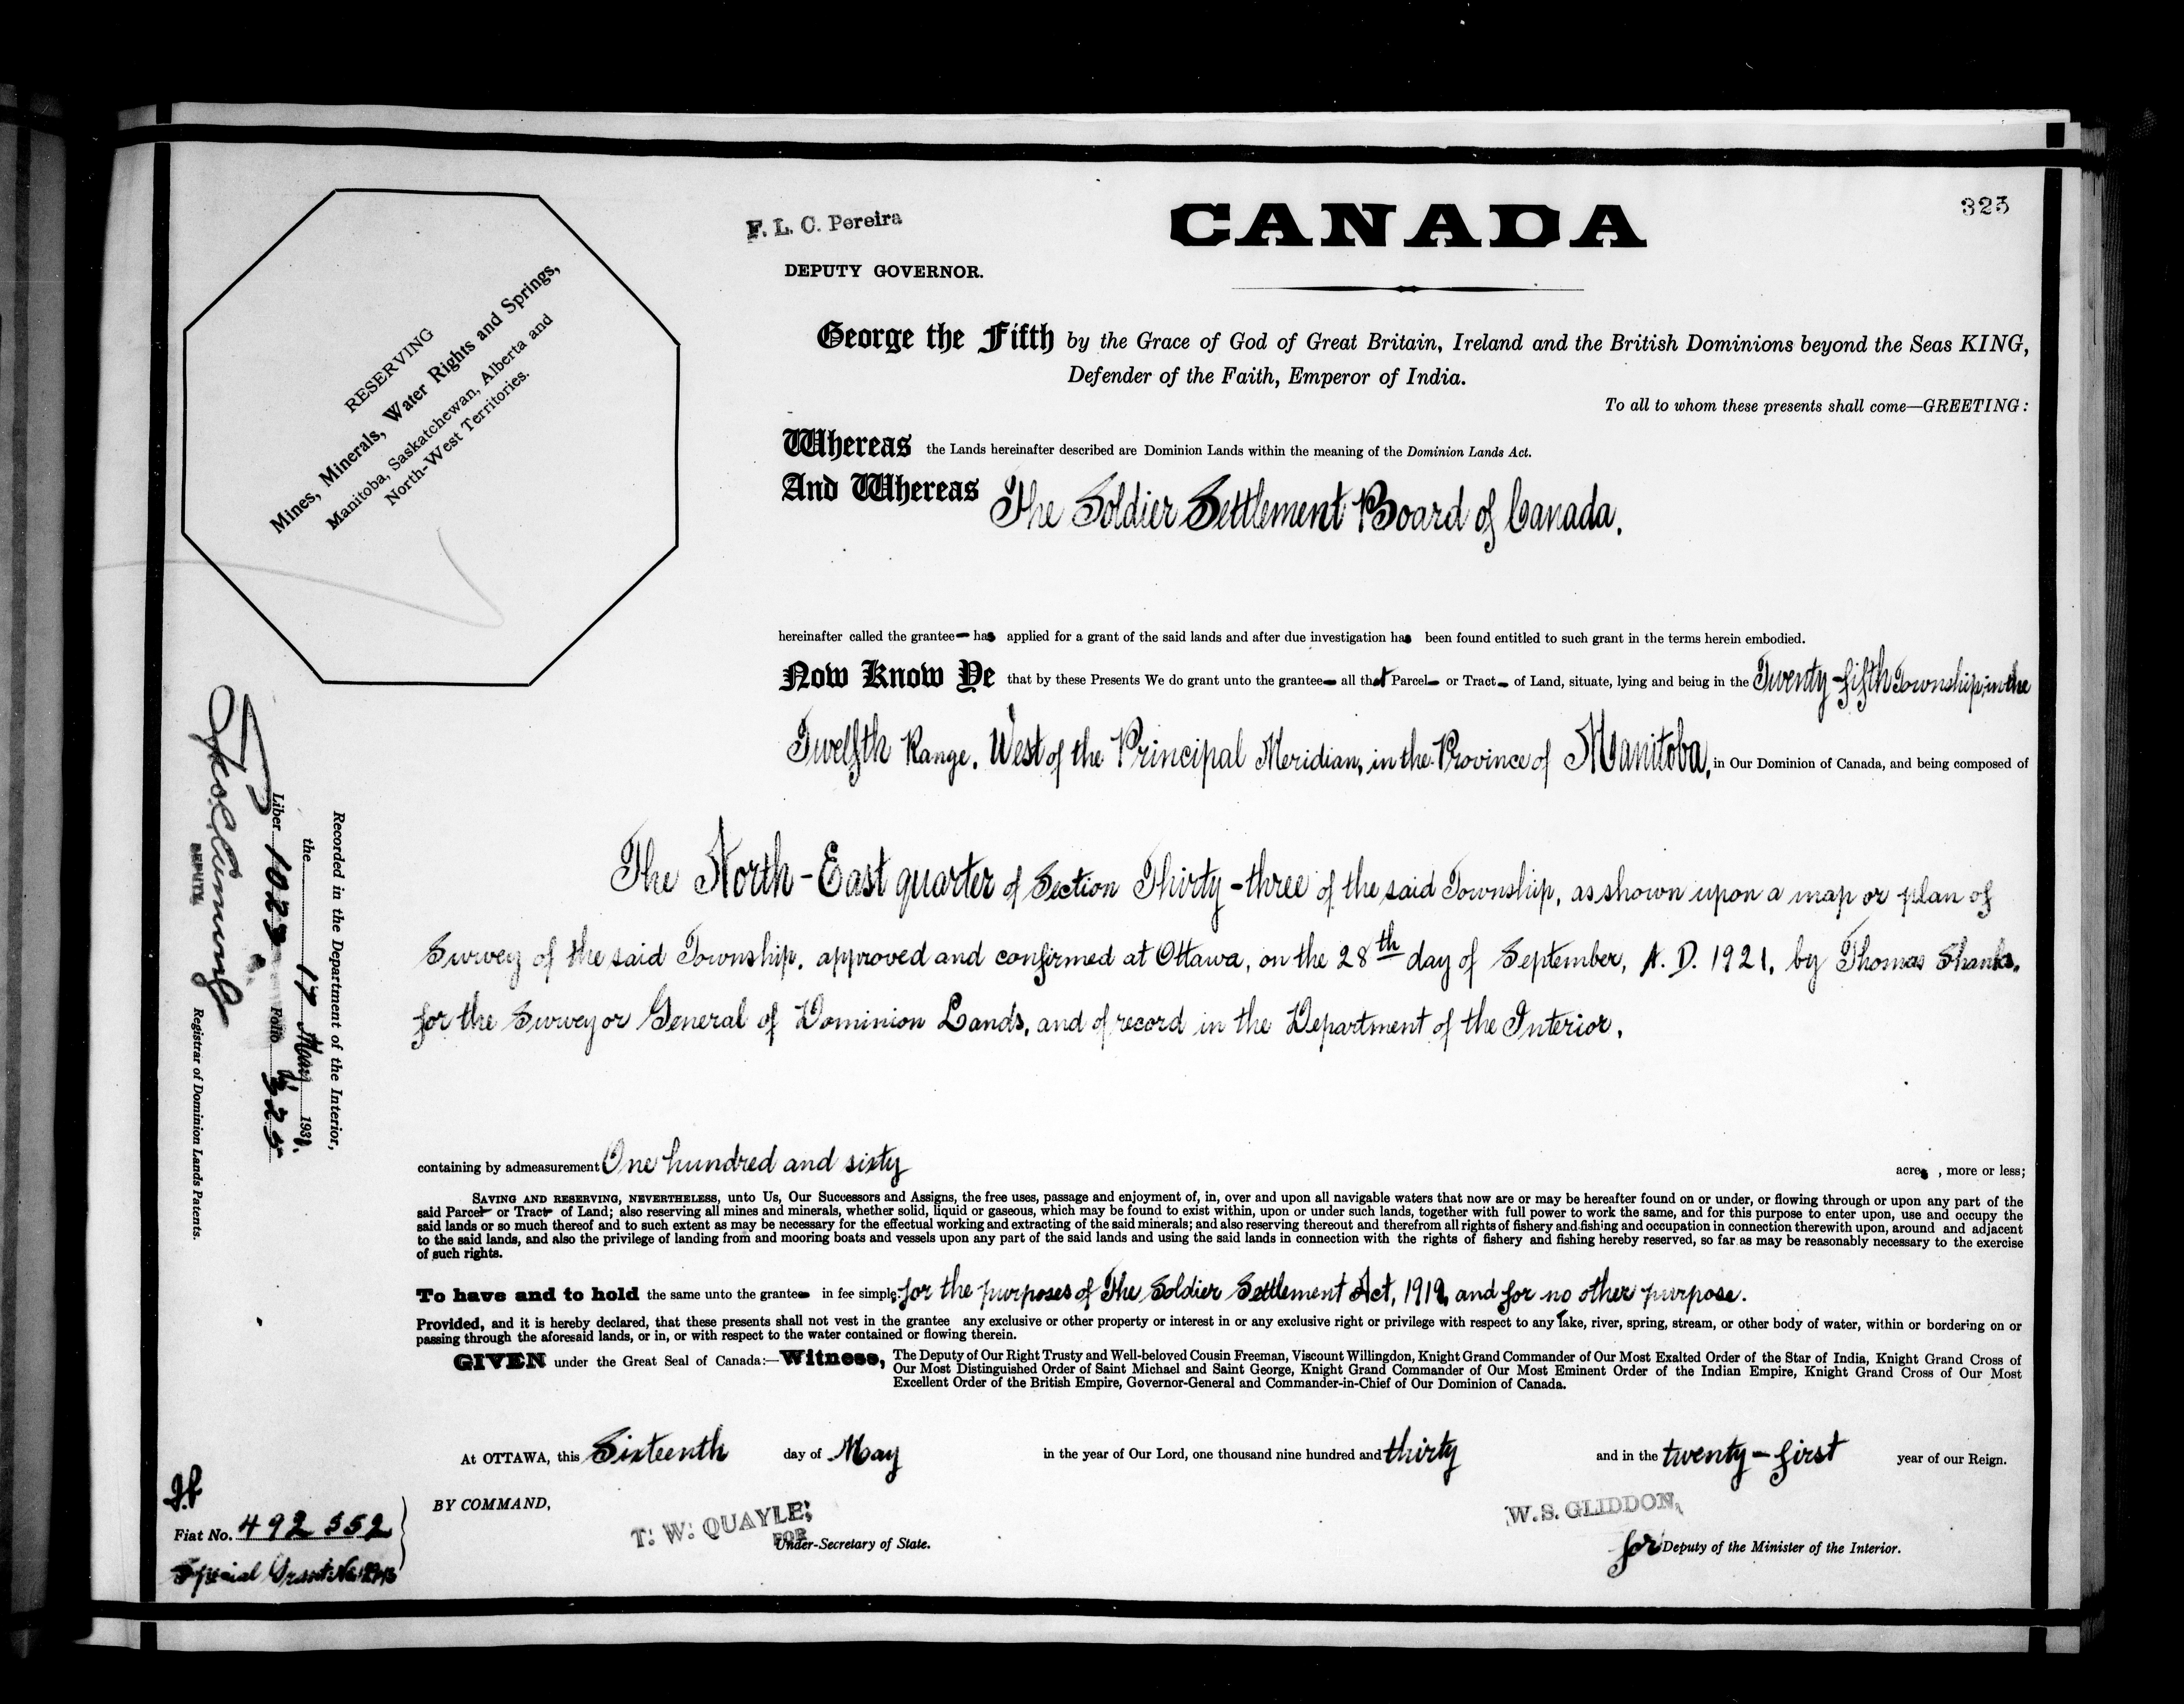 325
F. L. C. Pereira
CANADA
DEPUTY GOVERNOR.
RESERVING
Mines, Minerals, Water Rights and Springs,
Manitoba, Saskatchewan, Alberta and
North-West Territories.
George the Fifth by the Grace of God of Great Britain, Ireland and the British Dominions beyond the Seas KING,
Defender of the Faith, Emperor of India.
To all to whom these presents shall come—GREETING:
Whereas the Lands hereinafter described are Dominion Lands within the meaning of the Dominion Lands Act.
And Whereas The Soldier Settlement Board of Canada,
hereinafter called the grantee has applied for a grant of the said lands and after due investigation has been found entitled to such grant in the terms herein embodied.
Now Know Ye that by these Presents We do grant unto the grantee all that Parcel or Tract of Land, situate, lying and being in the Twenty-fifth Township, in the
Twelfth Range, West of the Principal Meridian, in the Province of Manitoba, in Our Dominion of Canada, and being composed of
The North-East quarter of Section Thirty-three of the said Township, as shown upon a map or plan of
Survey of the said Township, approved and confirmed at Ottawa, on the 28th day of September, A. D. 1921, by Thomas Shanks,
for the Surveyor General of Dominion Lands, and of record in the Department of the Interior.
containing by admeasurement One hundred and sixty acres, more or less;
SAVING AND RESERVING, NEVERTHELESS, unto Us, Our Successors and Assigns, the free uses, passage and enjoyment of, in, over and upon all navigable waters that now are or may be hereafter found on or under, or flowing through or upon any part of the
said Parcel or Tract of Land; also reserving all mines and minerals, whether solid, liquid or gaseous, which may be found to exist within, upon or under such lands, together with full power to work the same, and for this purpose to enter upon, use and occupy the
said lands or so much thereof and to such extent as may be necessary for the effectual working and extracting of the said minerals; and also reserving thereout and therefrom all rights of fishery and fishing and occupation in connection therewith upon, around and adjacent
to the said lands, and also the privilege of landing from and mooring boats and vessels upon any part of the said lands and using the said lands in connection with the rights of fishery and fishing hereby reserved, so far as may be reasonably necessary to the exercise
of such rights.
To have and to hold the same unto the grantee in fee simple, for the purposes of The Soldier Settlement Act, 1919, and for no other purpose.
Provided, and it is hereby declared, that these presents shall not vest in the grantee any exclusive or other property or interest in or any exclusive right or privilege with respect to any lake, river, spring, stream, or other body of water, within or bordering on or
passing through the aforesaid lands, or in, or with respect to the water contained or flowing therein.
GIVEN under the Great Seal of Canada:—Witness, The Deputy of Our Right Trusty and Well-beloved Cousin Freeman, Viscount Willingdon, Knight Grand Commander of Our Most Exalted Order of the Star of India, Knight Grand Cross of
Our Most Distinguished Order of Saint Michael and Saint George, Knight Grand Commander of Our Most Eminent Order of the Indian Empire, Knight Grand Cross of Our Most
Excellent Order of the British Empire, Governor-General and Commander-in-Chief of Our Dominion of Canada.
At OTTAWA, this Sixteenth day of May in the year of Our Lord, one thousand nine hundred and thirty and in the twenty-first year of our Reign.
BY COMMAND,
T. W. QUAYLE,
FOR
Under-Secretary of State.
W. S. GLIDDON,
for Deputy of the Minister of the Interior.
Recorded in the Department of the Interior,
the 17 May 193
Liber 1023 Folio 325
DEPUTY
Registrar of Dominion Lands Patents.
Fiat No. 492552
Special Grant No.